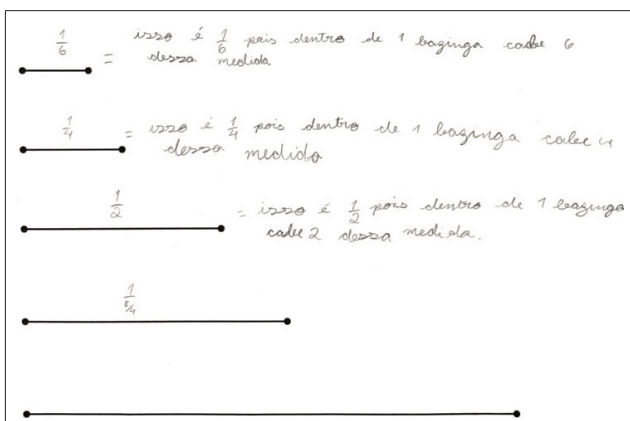 1/6 = isso é 1/6 pois dentro de 1 bazinga cabe 6
dessa medida
1/4 = isso é 1/4 pois dentro de 1 bazinga cabe 4
dessa medida
1/2 = isso é 1/2 pois dentro de 1 bazinga
cabe 2 dessa medida.